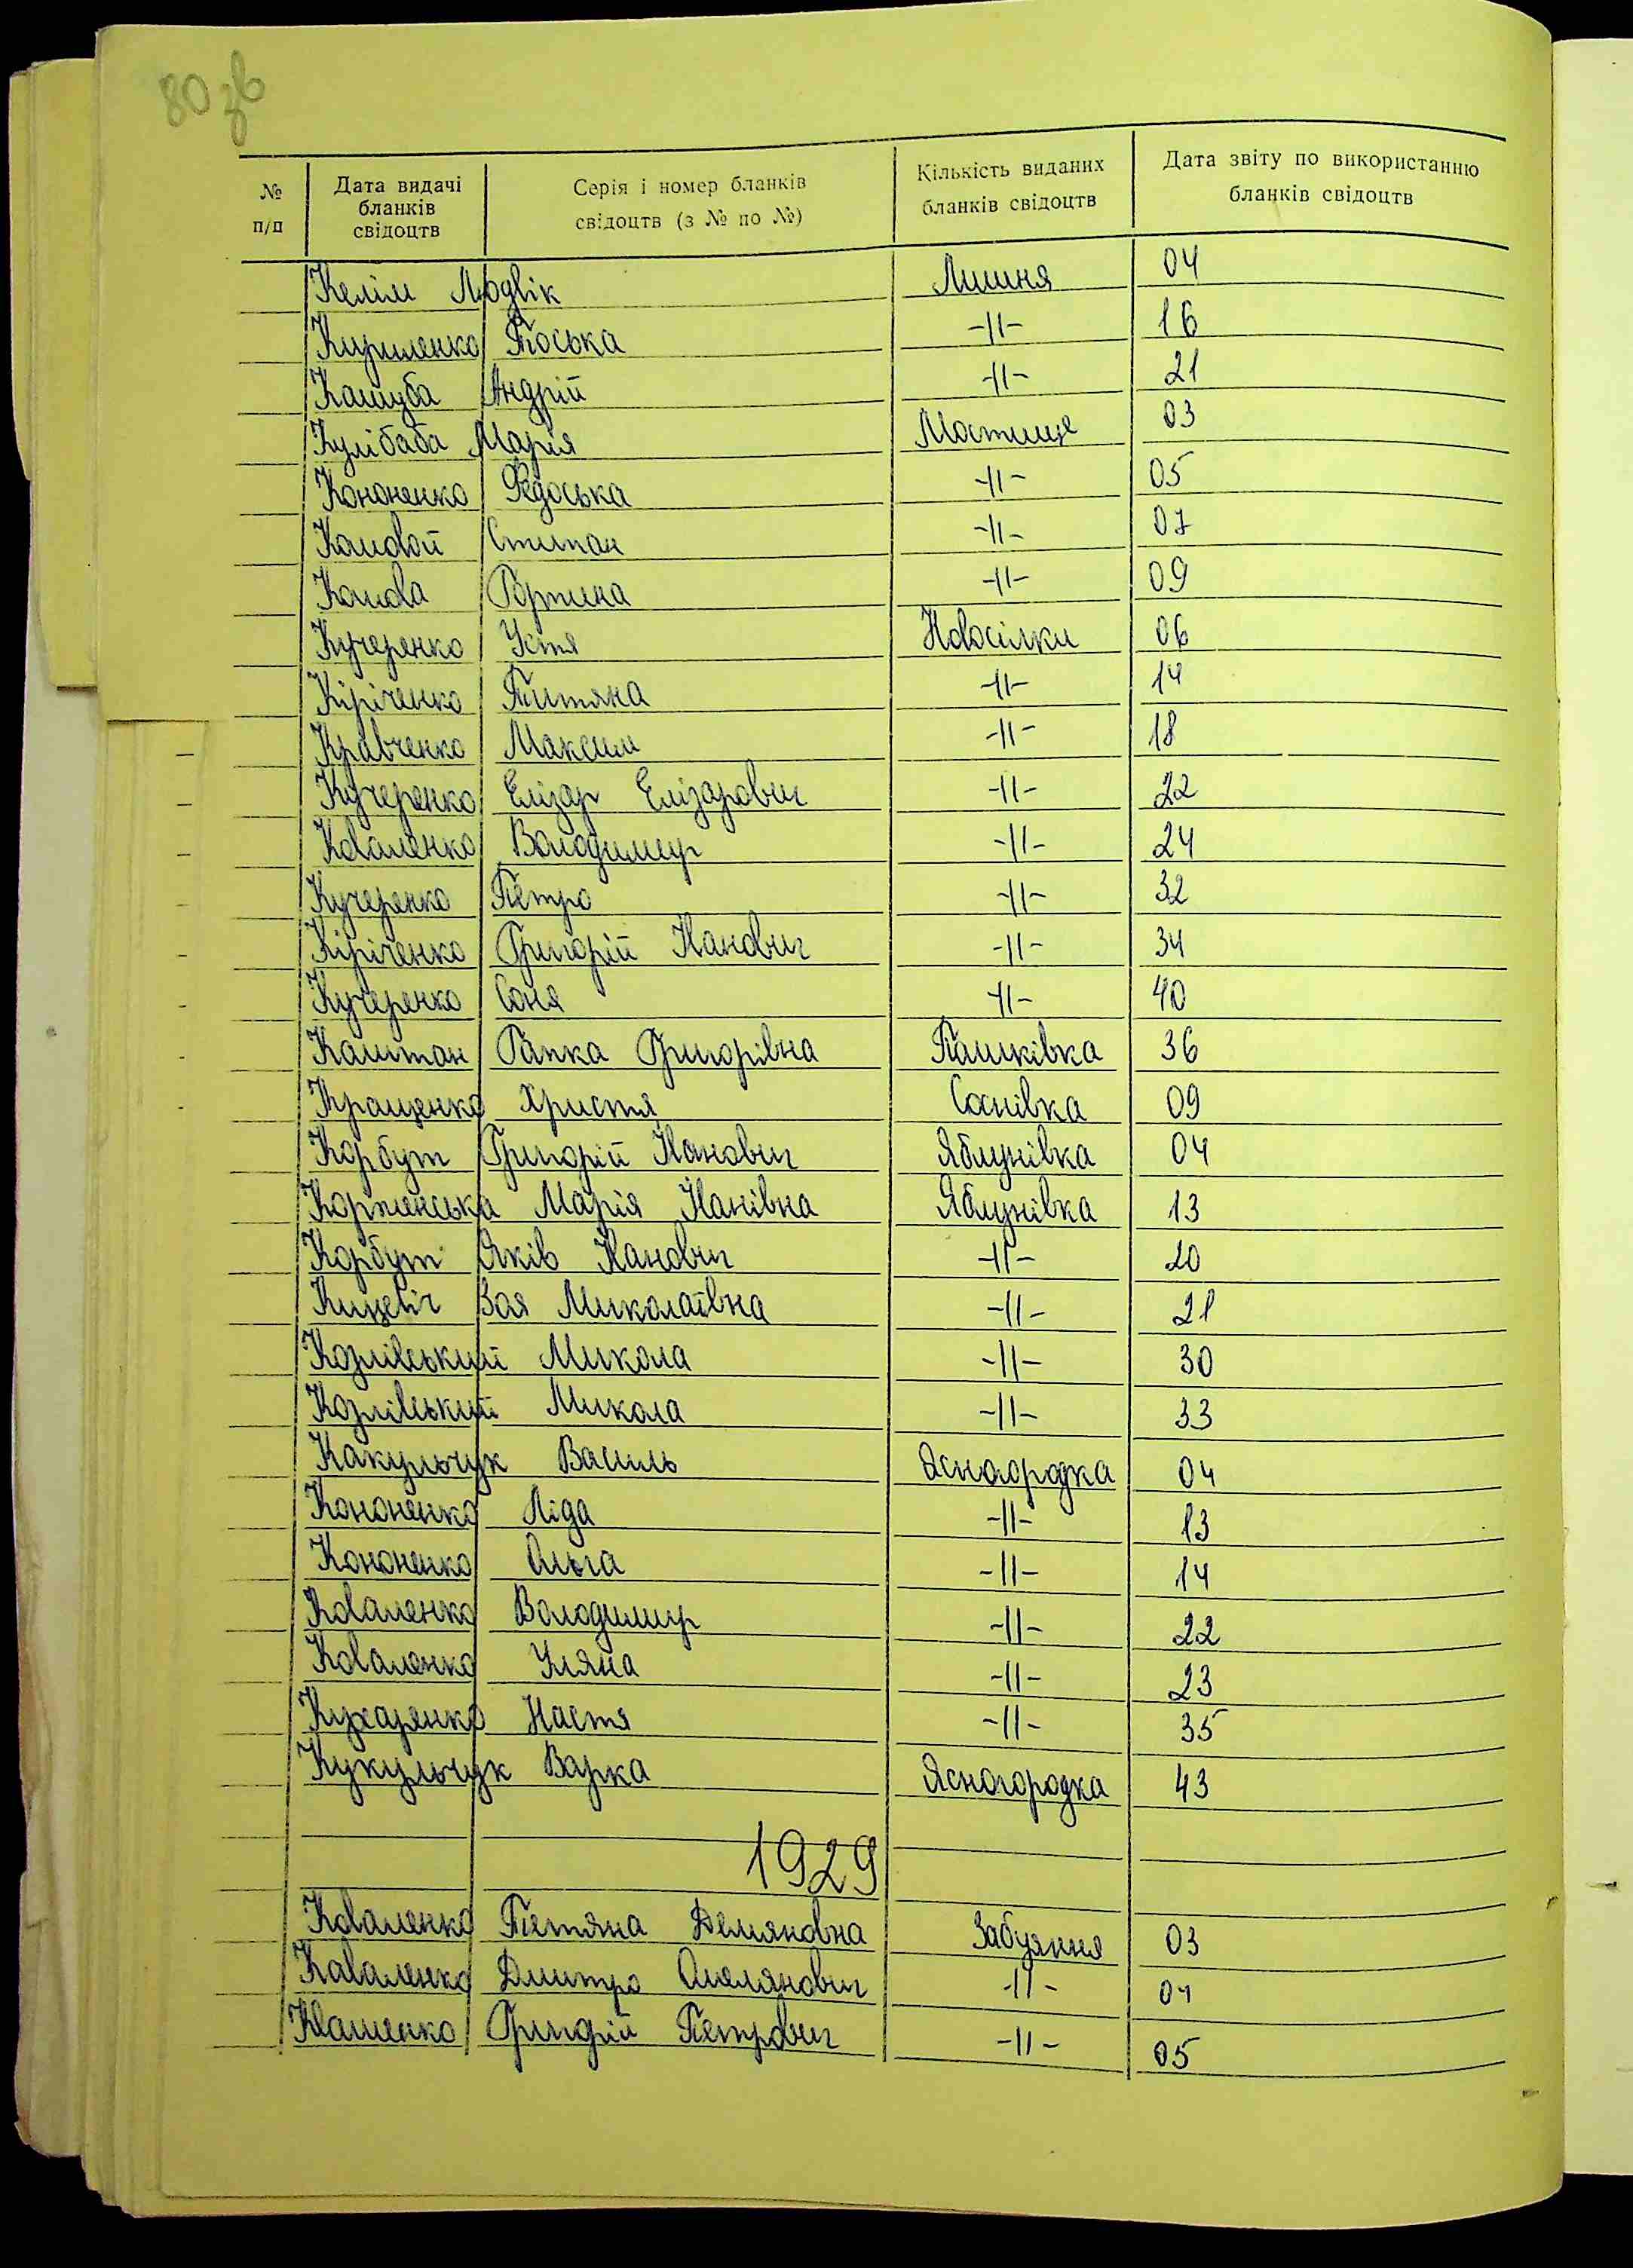 80 зв
№ п/п Дата видачі бланків свідоцтв Серія і номер бланків свідоцтв (з № по №) Кількість виданих бланків свідоцтв Дата звіту по використанню бланків свідоцтв
Келім Людвік Лишня 04
Кириленко Тоська -//- 16
Кашуба Андрій -//- 21
Кулібаба Марія Мостище 03
Кононенко Федоська -//- 05
Комовой Степан -//- 07
Комова Горпина -//- 09
Кучеренко Устя Новосілки 06
Кіріченко Титяна -//- 14
Кравченко Максим -//- 18
Кучеренко Елізар Елізарович -//- 22
Коваленко Володимир -//- 24
Кучеренко Петро -//- 32
Кіріченко Григорій Іванович -//- 34
Кучеренко Соня -//- 40
Каштан Гапка Григорівна Пашківка 36
Кращенко Христя Соснівка 09
Корбут Григорій Іванович Яблунівка 04
Корженська Марія Іванівна Яблунівка 13
Корбут Яків Іванович -//- 20
Зоя Миколаївна -//- 21
Козлівський Микола -//- 30
Козлівський Микола -//- 33
Какульчук Василь Ясногородка 04
Кононенко Ліда -//- 13
Кононенко Ольга -//- 14
Коваленко Володимир -//- 22
Коваленко Уляна -//- 23
Кухаренко Настя -//- 35
Кукульчук Варка Ясногородка 43
1929
Коваленко Тетяна Демяновна Забуяння 03
Коваленко Дмитро Омелянович -//- 04
Квашенко Григорій Петрович -//- 05